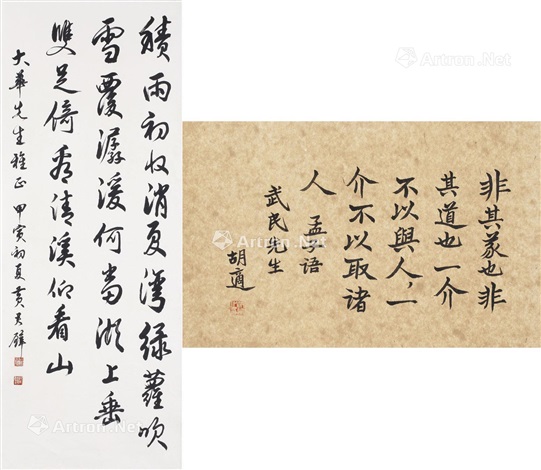 積雨初收消夏灣綠蘿吹
雪覆潺湲何當湖上垂
雙足俯看清溪仰看山
大華先生雅正 甲寅初夏黃君璧
非其義也非
其道也一介
不以與人，一
介不以取諸
人 孟子語
胡適
武民先生
Artron.Net
Artron.Net
Artron.Net
Artron.Net